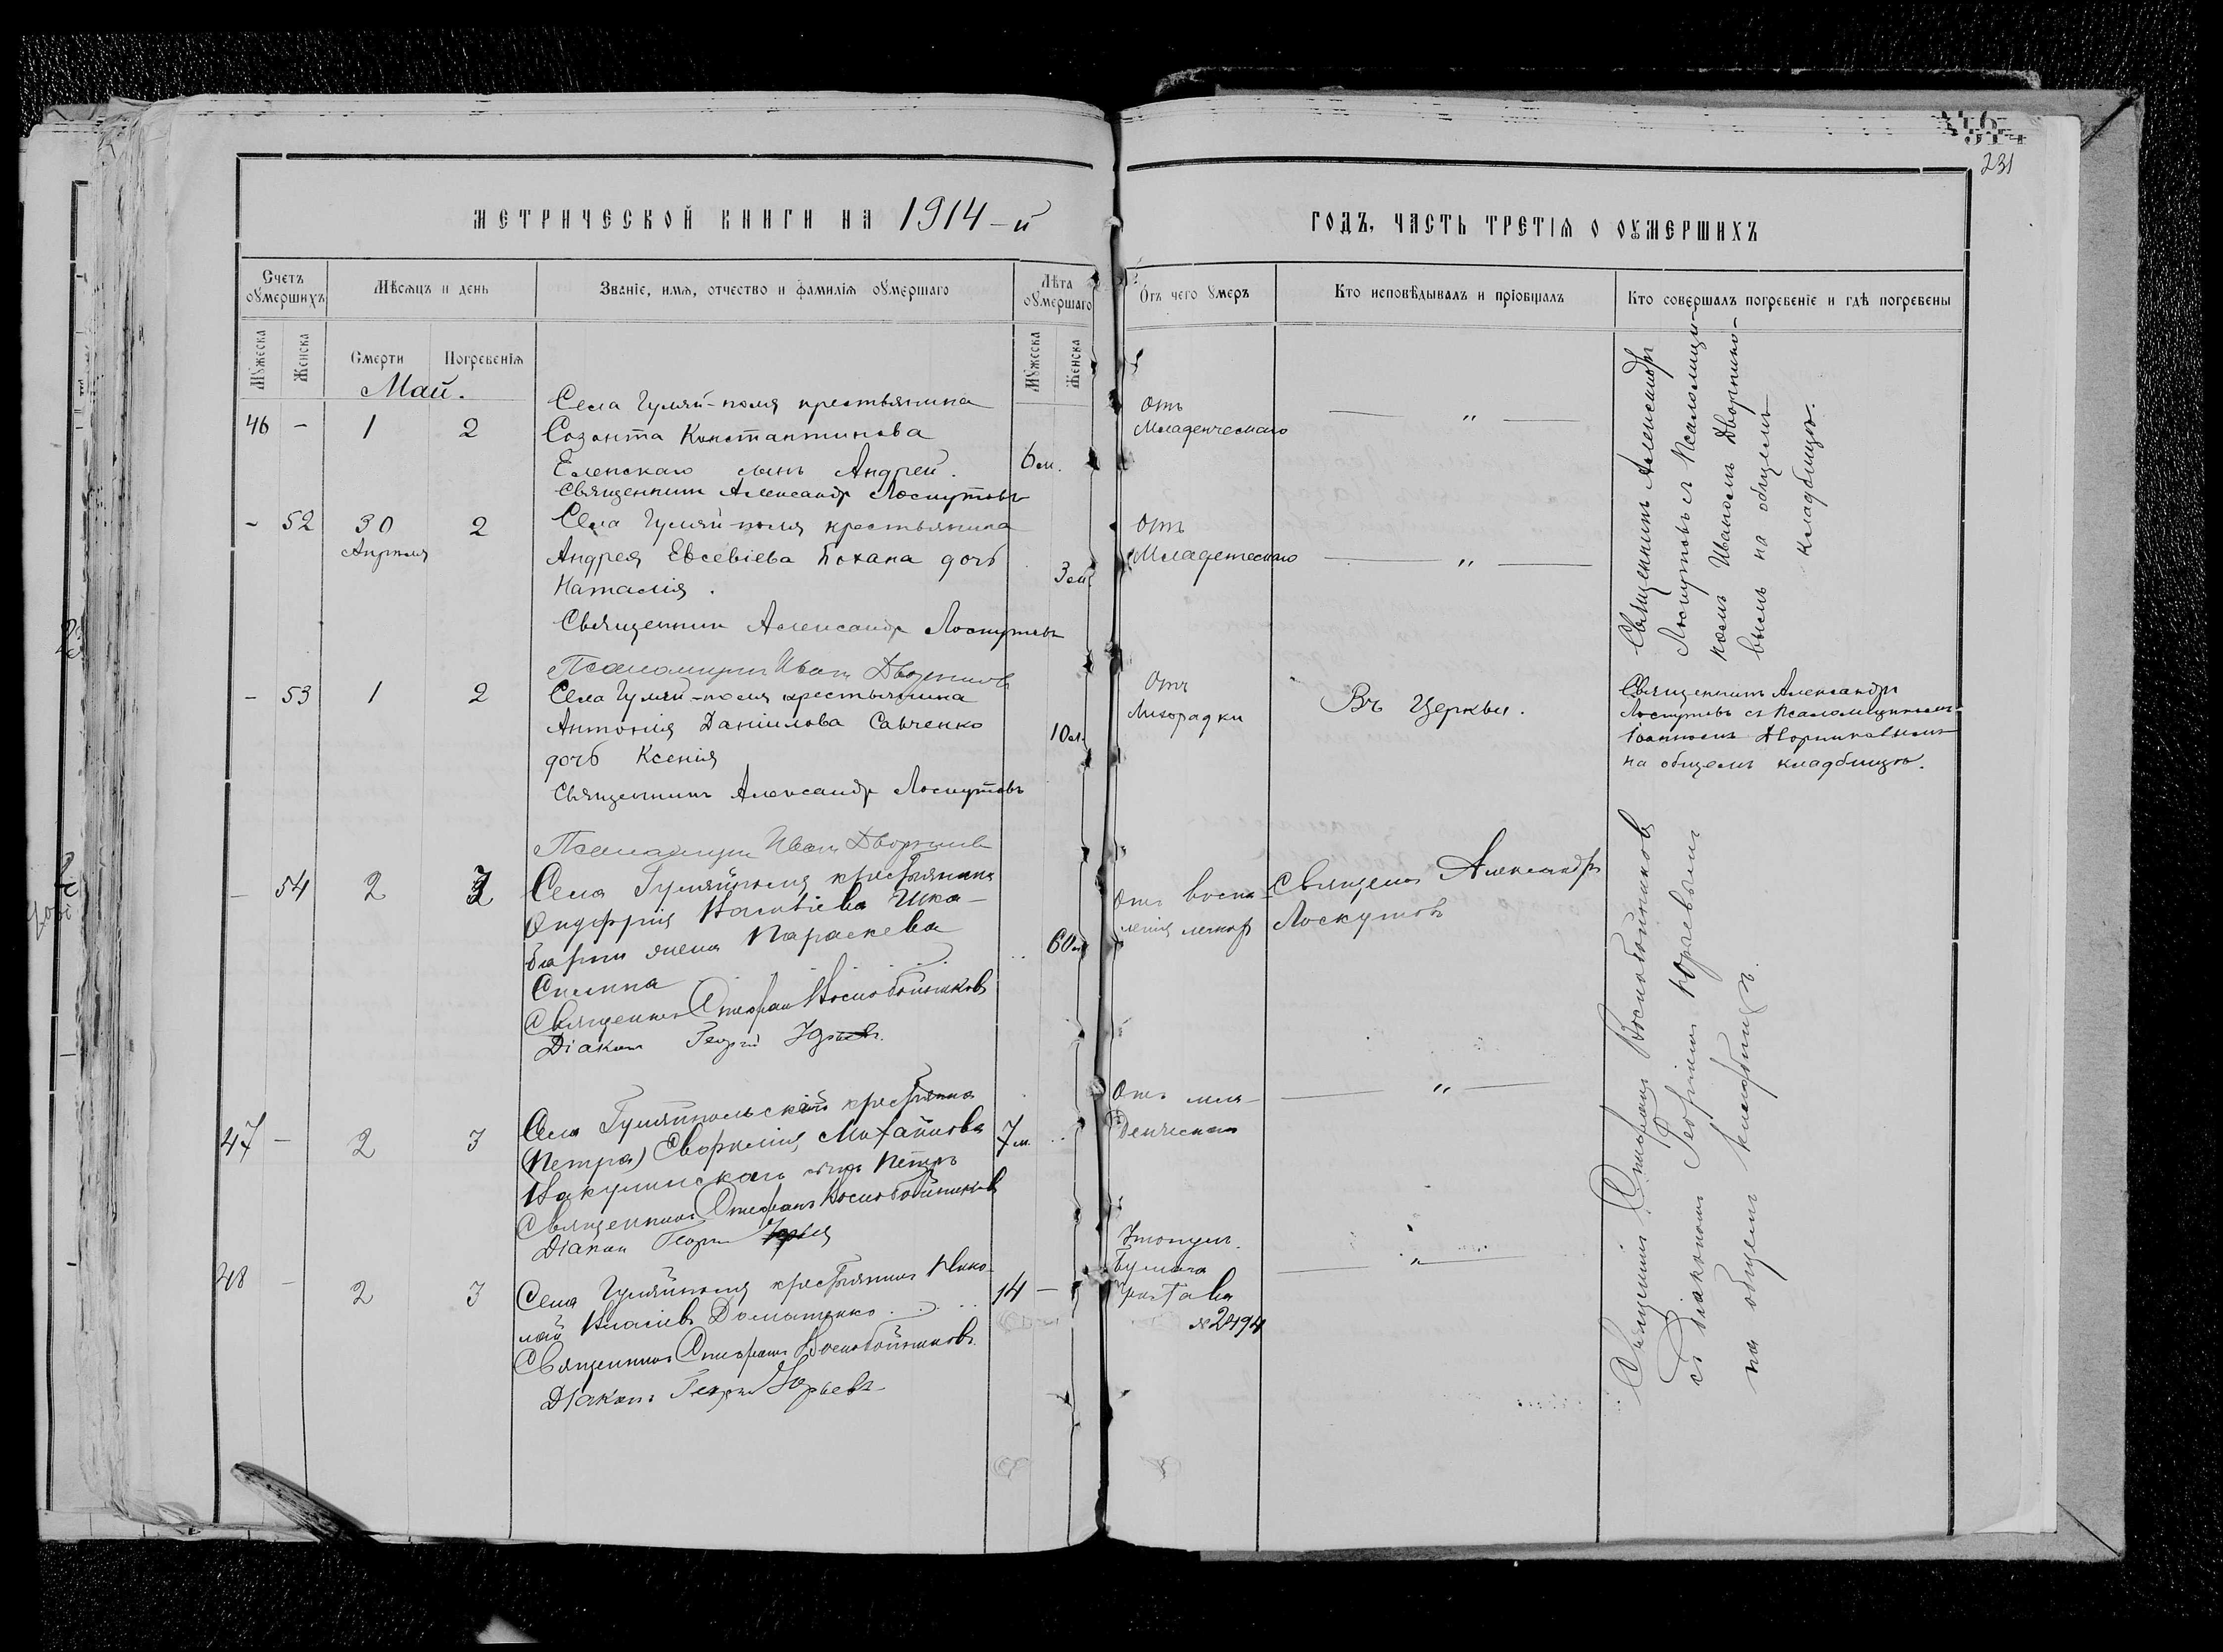 231
МЕТРИЧЕСКОЙ КНИГИ НА 1914-й
ГОДЪ, ЧАСТЬ ТРЕТІѦ О ОУМЕРШИХЪ
Счетъ оумершихъ
Мѣсѧцъ и день
Званіе, имѧ, отчество и фамиліѧ оумершаго
Лѣта оумершаго
Отъ чего умеръ
Кто исповѣдывалъ и пріобщалъ
Кто совершалъ погребеніе и гдѣ погребены
Мужеска
Женска
Смерти
Погребеніѧ
Мужеска
Женска
Май.
46 - 1 2
Села Гуляй-поля крестьянина
Созонта Константинова
Еленскаго сынъ Андрей.
Священникъ Александр Лоскутовъ
6 м.
Отъ
Младенческаго
— „ —
Священникъ Александръ
Лоскутовъ съ Псаломщи-
комъ Иваномъ Дворнико-
вымъ на общемъ
кладбищѣ.
- 52 30 2
Апрѣля
Села Гуляй-поля крестьянина
Андрея Евсевіева Бохана дочь
Наталія.
Священник Александр Лоскутовъ
Псаломщик Иван Дворников
3 м.
Отъ
Младенческаго
— „ —
- 53 1 2
Села Гуляй-поля крестьянина
Антонія Даніилова Савченко
дочь Ксенія
Священникъ Александр Лоскутовъ
Псаломщик Иван Дворников
10 л.
Отъ
Лихорадки
Въ Церкви.
Священникъ Александръ
Лоскутовъ съ Псаломщикомъ
Іоанномъ Дворниковымъ
на общемъ кладбищѣ.
- 54 2 3
Села Гуляйполя крестьянина
Онуфрія
жена Параскева
Священник Стефан Воскобойников
Діакон Георгий Юрьевъ.
60
Отъ воспа-
ленія легких
Священник Александръ
Лоскутовъ
Священникъ Стефанъ Воскобойниковъ
съ Діакономъ Георгіемъ Юрьевымъ
на общемъ кладбищѣ.
47 - 2 3
Села Гуляйпольскаго крестьянина
(Петра) Михайлова
сынъ Петръ
Священникъ Стефанъ Воскобойников
Діакон Георгий Юрьев
7 м.
Отъ мла-
денческаго
— „ —
48 - 2 3
Села Гуляйполя крестьянинъ Нико-
лай Власіевъ Доматенко
Священникъ Стефанъ Воскобойниковъ.
Діаконъ Георгий Юрьевъ
14 -
Утонулъ.
Бумага
Пристава
№2494
— „ —